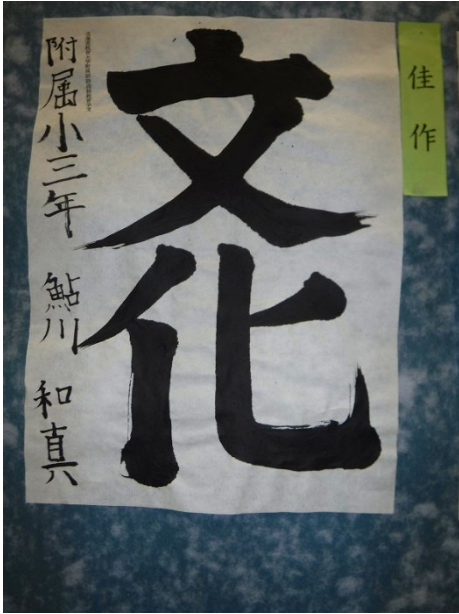 佳作
文化
附属小三年 鮎川 和真